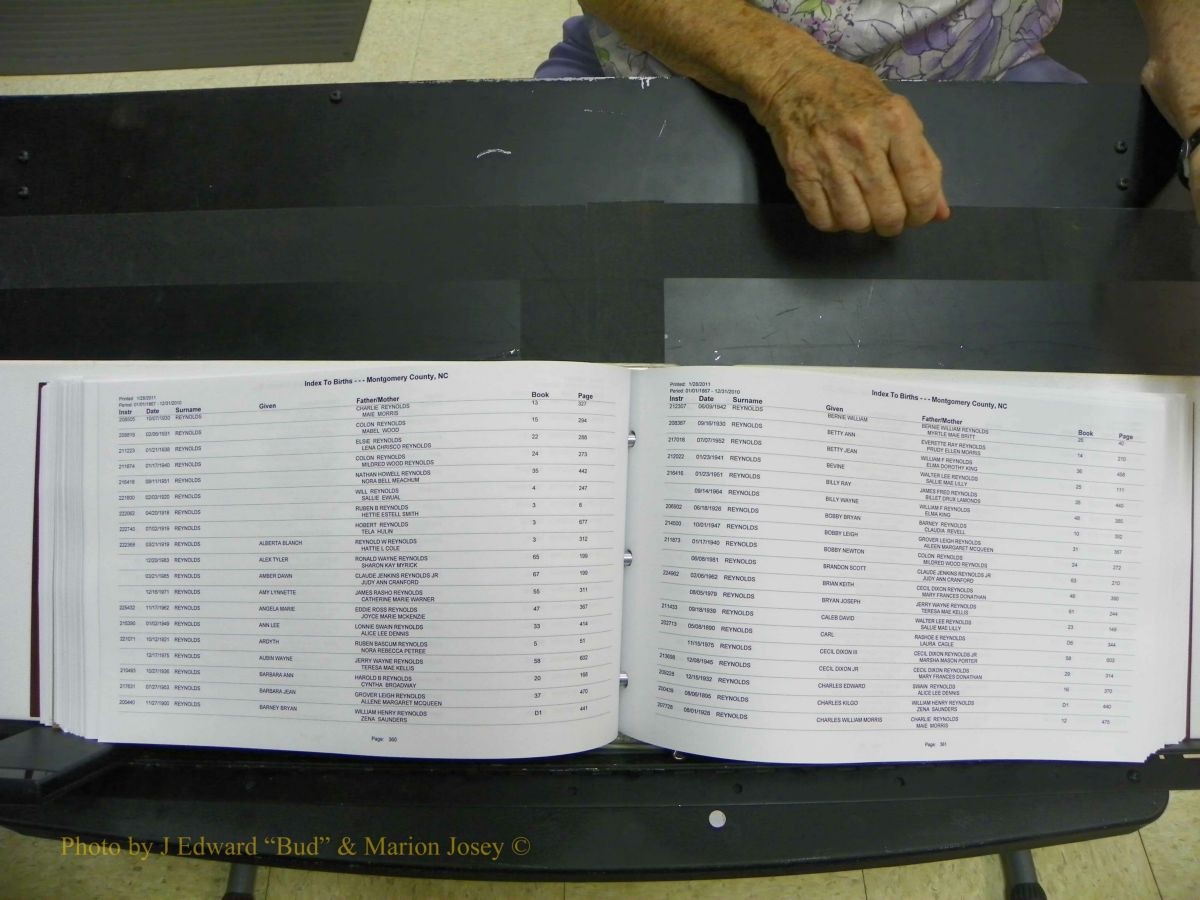 Index To Births - - - Montgomery County, NC
Printed: 1/28/2011
Period: 01/01/1867 - 12/31/2010
Instr Date Surname Given Father/Mother Book Page
208505 10/07/1930 REYNOLDS CHARLIE REYNOLDS 13 327
MAIE MORRIS
REYNOLDS COLON REYNOLDS 15 294
MABEL WOOD
211223 01/21/1938 REYNOLDS ELSIE REYNOLDS 22 288
LENA CHRISCO REYNOLDS
211874 01/17/1940 REYNOLDS COLON REYNOLDS 24 273
MILDRED WOOD REYNOLDS
216418 09/11/1951 REYNOLDS NATHAN HOWELL REYNOLDS 35 442
NORA BELL MEACHUM
221800 02/03/1920 REYNOLDS WILL REYNOLDS 4 247
SALLIE EWUAL
222082 04/20/1918 REYNOLDS RUBEN B REYNOLDS 3 6
HETTIE ESTELL SMITH
222740 07/02/1919 REYNOLDS HOBERT REYNOLDS 3 677
TELA HULIN
222369 03/21/1919 REYNOLDS ALBERTA BLANCH REYNOLD W REYNOLDS 3 312
HATTIE L COLE
12/20/1983 REYNOLDS ALEX TYLER RONALD WAYNE REYNOLDS 65 199
SHARON KAY MYRICK
03/21/1985 REYNOLDS AMBER DAWN CLAUDE JENKINS REYNOLDS JR 67 199
JUDY ANN CRANFORD
12/16/1971 REYNOLDS AMY LYNNETTE JAMES RASHO REYNOLDS 55 311
CATHERINE MARIE WARNER
225432 11/17/1962 REYNOLDS ANGELA MARIE EDDIE ROSS REYNOLDS 47 367
JOYCE MARIE MCKENZIE
215390 01/02/1949 REYNOLDS ANN LEE LONNIE SWAIN REYNOLDS 33 414
ALICE LEE DENNIS
221071 10/12/1921 REYNOLDS ARDYTH RUBEN BASCUM REYNOLDS 5 51
NORA REBECCA PETREE
12/17/1975 REYNOLDS AUBIN WAYNE JERRY WAYNE REYNOLDS 58 632
TERESA MAE KELLIS
210493 10/27/1936 REYNOLDS BARBARA ANN HAROLD B REYNOLDS 20 168
CYNTHA BROADWAY
217631 07/27/1953 REYNOLDS BARBARA JEAN GROVER LEIGH REYNOLDS 37 470
ALLENE MARGARET MCQUEEN
205440 11/27/1900 REYNOLDS BARNEY BRYAN WILLIAM HENRY REYNOLDS D1 441
ZENA SAUNDERS
Page: 360
Index To Births - - - Montgomery County, NC
Printed: 1/28/2011
Period: 01/01/1867 - 12/31/2010
Instr Date Surname Given Father/Mother Book Page
212307 06/09/1942 REYNOLDS BERNIE WILLIAM BERNIE WILLIAM REYNOLDS 26 40
MYRTLE MAE BRITT
208387 09/16/1930 REYNOLDS BETTY ANN EVERETTE RAY REYNOLDS 14 210
PRUDY ELLEN MORRIS
217016 07/07/1952 REYNOLDS BETTY JEAN WILLIAM F REYNOLDS 36 458
ELMA DOROTHY KING
212022 01/23/1941 REYNOLDS BEVINE WALTER LEE REYNOLDS 25 111
SALLIE MAE LILLY
216416 01/23/1951 REYNOLDS BILLY RAY JAMES FRED REYNOLDS 35 440
BILLET DRUX LAMONDS
09/14/1964 REYNOLDS BILLY WAYNE WILLIAM F REYNOLDS 48 385
ELMA KING
206902 06/18/1926 REYNOLDS BOBBY BRYAN BARNEY REYNOLDS 10 392
CLAUDIA REVELL
214500 10/01/1947 REYNOLDS BOBBY LEIGH GROVER LEIGH REYNOLDS 31 367
AILEEN MARGARET MCQUEEN
211873 01/17/1940 REYNOLDS BOBBY NEWTON COLON REYNOLDS 24 272
MILDRED WOOD REYNOLDS
06/08/1981 REYNOLDS BRANDON SCOTT CLAUDE JENKINS REYNOLDS JR 63 210
JUDY ANN CRANFORD
224962 02/06/1962 REYNOLDS BRIAN KEITH CECIL DIXON REYNOLDS 46 390
MARY FRANCES DONATHAN
08/05/1979 REYNOLDS BRYAN JOSEPH JERRY WAYNE REYNOLDS 61 244
TERESA MAE KELLIS
211433 09/18/1939 REYNOLDS CALEB DAVID WALTER LEE REYNOLDS 23 149
SALLIE MAE LILLY
202713 05/08/1890 REYNOLDS CARL RASHOE E REYNOLDS D5 344
LAURA CAGLE
11/15/1975 REYNOLDS CECIL DIXON III CECIL DIXON REYNOLDS JR 58 603
MARSHA MASON PORTER
213698 12/08/1945 REYNOLDS CECIL DIXON JR CECIL DIXON REYNOLDS 29 314
MARY FRANCES DONATHAN
209228 12/15/1932 REYNOLDS CHARLES EDWARD SWAIN REYNOLDS 16 370
ALICE LEE DENNIS
08/06/1895 REYNOLDS CHARLES KILGO WILLIAM HENRY REYNOLDS D1 440
ZENA SAUNDERS
207728 08/01/1928 REYNOLDS CHARLES WILLIAM MORRIS CHARLIE REYNOLDS 12 475
MAIE MORRIS
Page: 361
Photo by J Edward “Bud” & Marion Josey ©